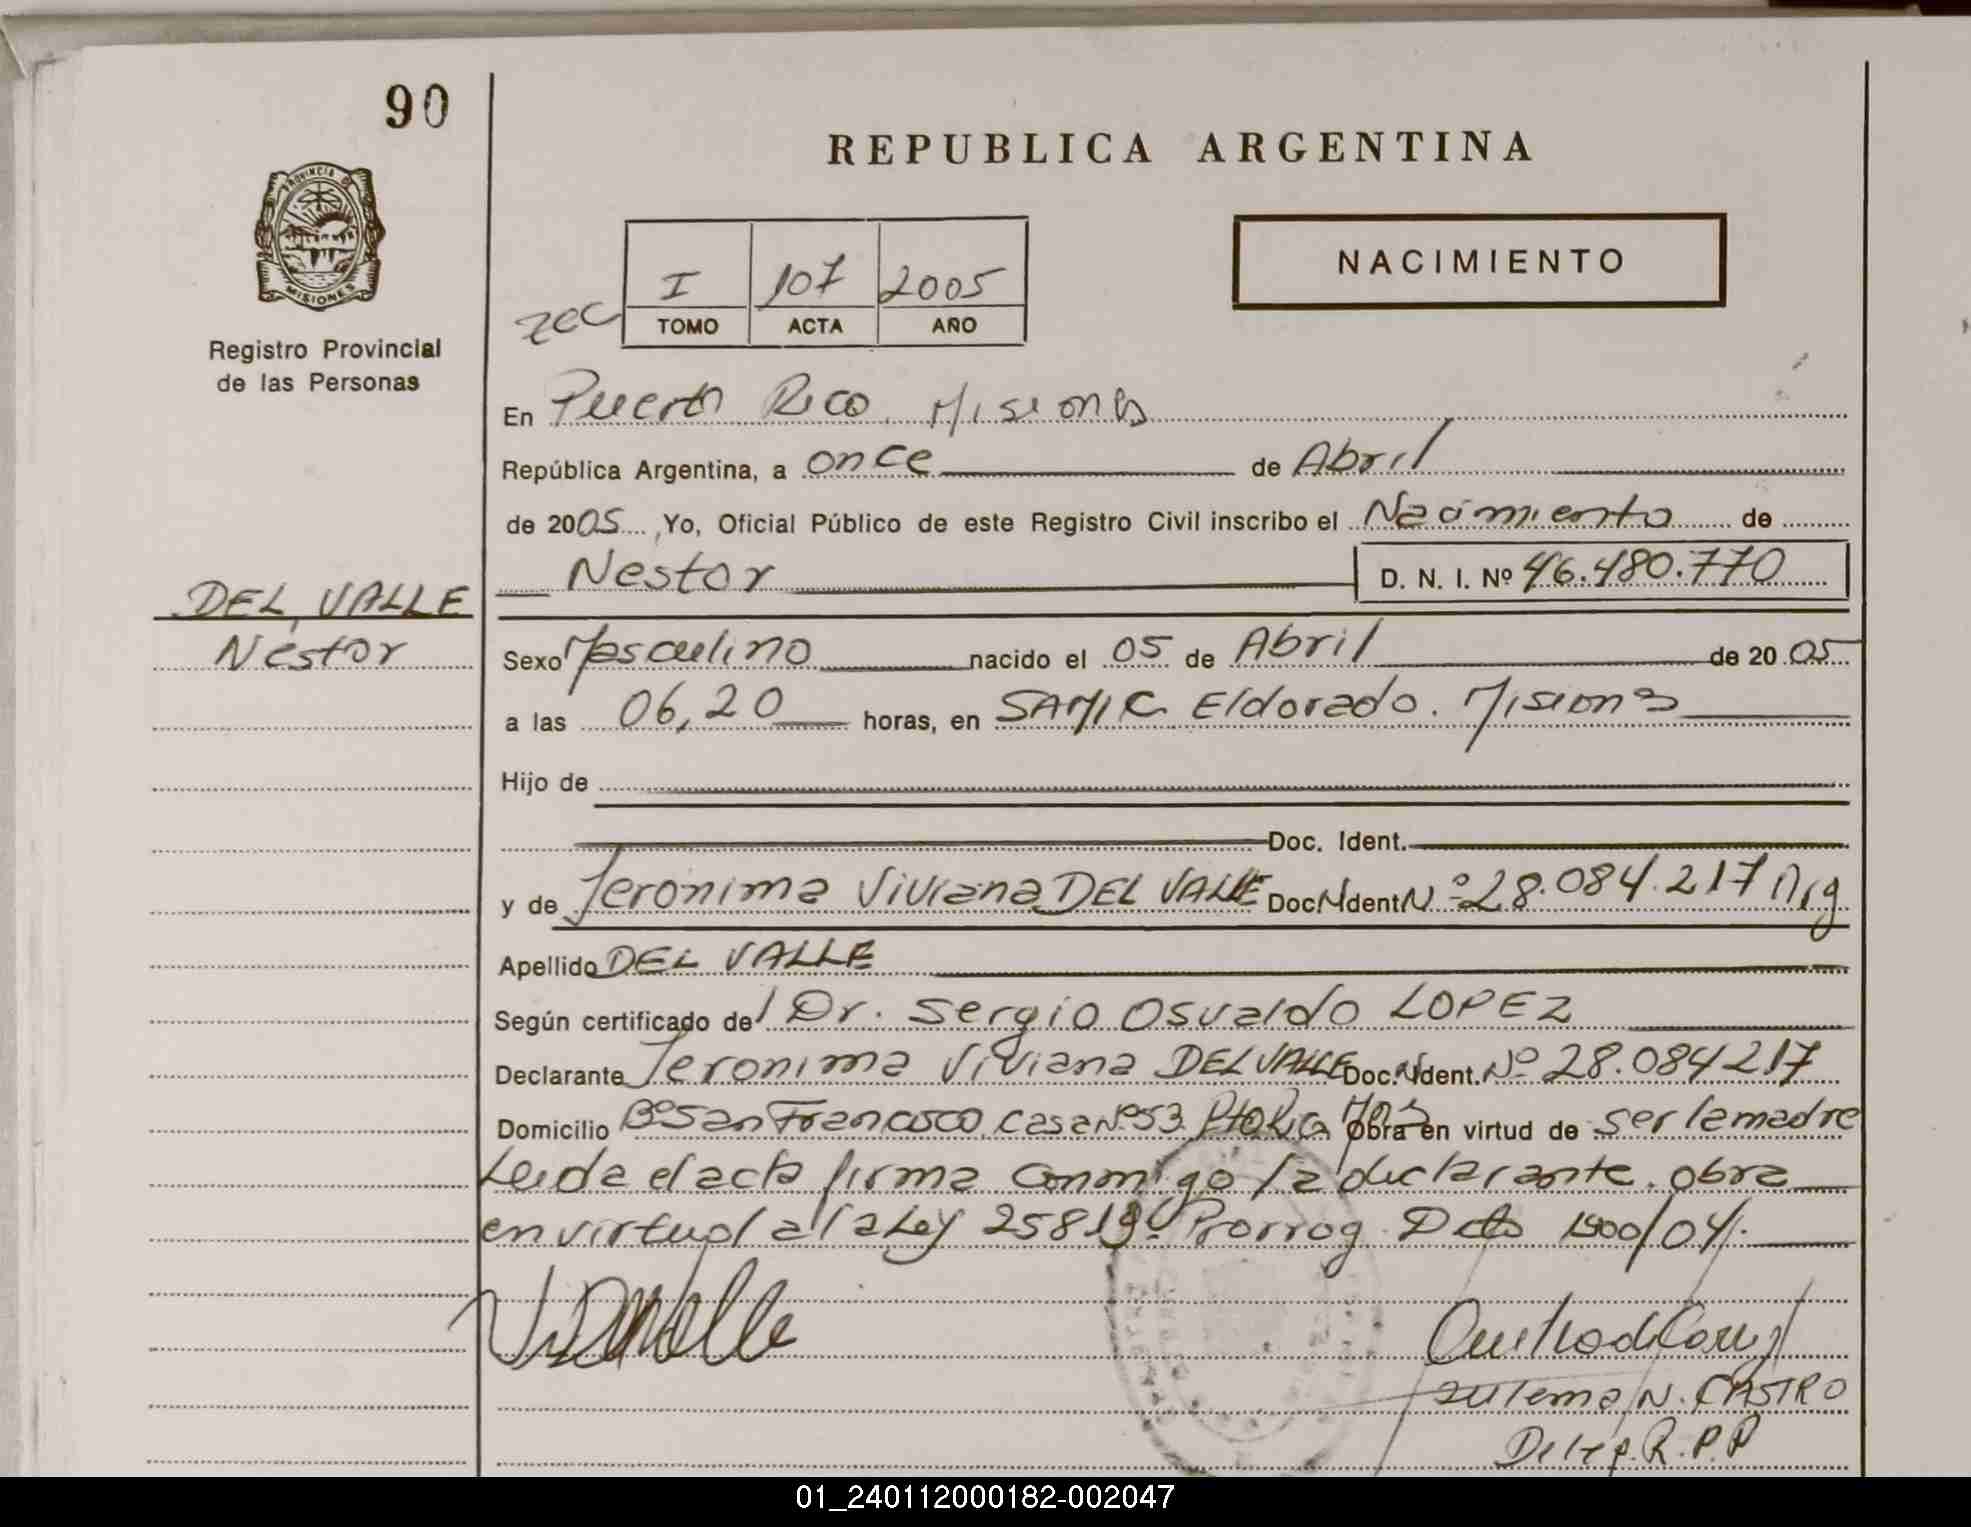 90
REPUBLICA ARGENTINA
PROVINCIA DE
MISIONES
Registro Provincial
de las Personas
NACIMIENTO
I 107 2005
TOMO ACTA AÑO
En Puerto Rico. Misiones
República Argentina, a once de Abril
de 2005, Yo, Oficial Público de este Registro Civil inscribo el Nacimiento de
Nestor D. N. I. Nº 46.480.770
DEL VALLE
Nestor
Sexo Masculino nacido el 05 de Abril de 20 05
a las 06,20 horas, en SAMIC Eldorado. Misiones
Hijo de
Doc. Ident.
y de Jeronima Viviana DEL VALLE Doc. Ident. Nº 28.084.217 Arg
Apellido DEL VALLE
Según certificado del Dr. Sergio Osvaldo LOPEZ
Declarante Jeronima Viviana DEL VALLE Doc. Ident. Nº 28.084217
Domicilio Bº San Francisco, Casa Nº 53. Pto Rico Mns Obra en virtud de ser la madre
Leida el acta firma conmigo la declarante. obra
en virtud a la Ley 25819 Prorrog. Dcto 1900/04.
Zulema N. CASTRO
Deleg. R.P.P
01_240112000182-002047